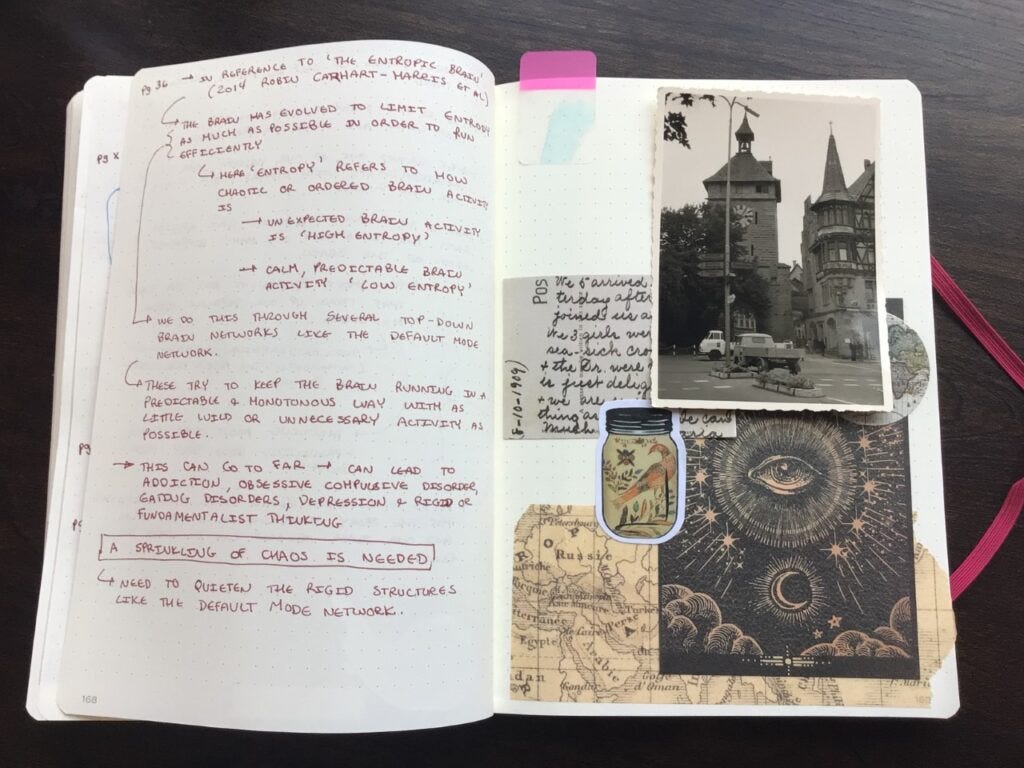 Pg 36 → IN REFERENCE TO 'THE ENTROPIC BRAIN'
(2014 ROBIN CARHART-HARRIS ET AL)
THE BRAIN HAS EVOLVED TO LIMIT ENTROPY
AS MUCH AS POSSIBLE IN ORDER TO RUN
EFFICIENTLY
HERE 'ENTROPY' REFERS TO HOW
CHAOTIC OR ORDERED BRAIN ACTIVITY
IS
→ UNEXPECTED BRAIN ACTIVITY
IS 'HIGH ENTROPY'
→ CALM, PREDICTABLE BRAIN
ACTIVITY 'LOW ENTROPY'
WE DO THIS THROUGH SEVERAL TOP-DOWN
BRAIN NETWORKS LIKE THE DEFAULT MODE
NETWORK.
THESE TRY TO KEEP THE BRAIN RUNNING IN A
PREDICTABLE & MONOTONOUS WAY WITH AS
LITTLE WILD OR UNNECESSARY ACTIVITY AS
POSSIBLE.
→ THIS CAN GO TO FAR → CAN LEAD TO
ADDICTION, OBSESSIVE COMPULSIVE DISORDER,
EATING DISORDERS, DEPRESSION & RIGID OR
FUNDAMENTALIST THINKING
A SPRINKLING OF CHAOS IS NEEDED
NEED TO QUIETEN THE RIGID STRUCTURES
LIKE THE DEFAULT MODE NETWORK.
168
Pg x
Pg
POS
We 5 arrived
terday after
joined us a
We 3 girls we
sea-sick cro
& the Dr. were
is just delig
& we are
thing a
much
we can
8-10-1909)
St Petersbourg
Russie
Turke
Perse
Asie Mineure
Egypte
Arabie
Golfe
d'Oman
dan